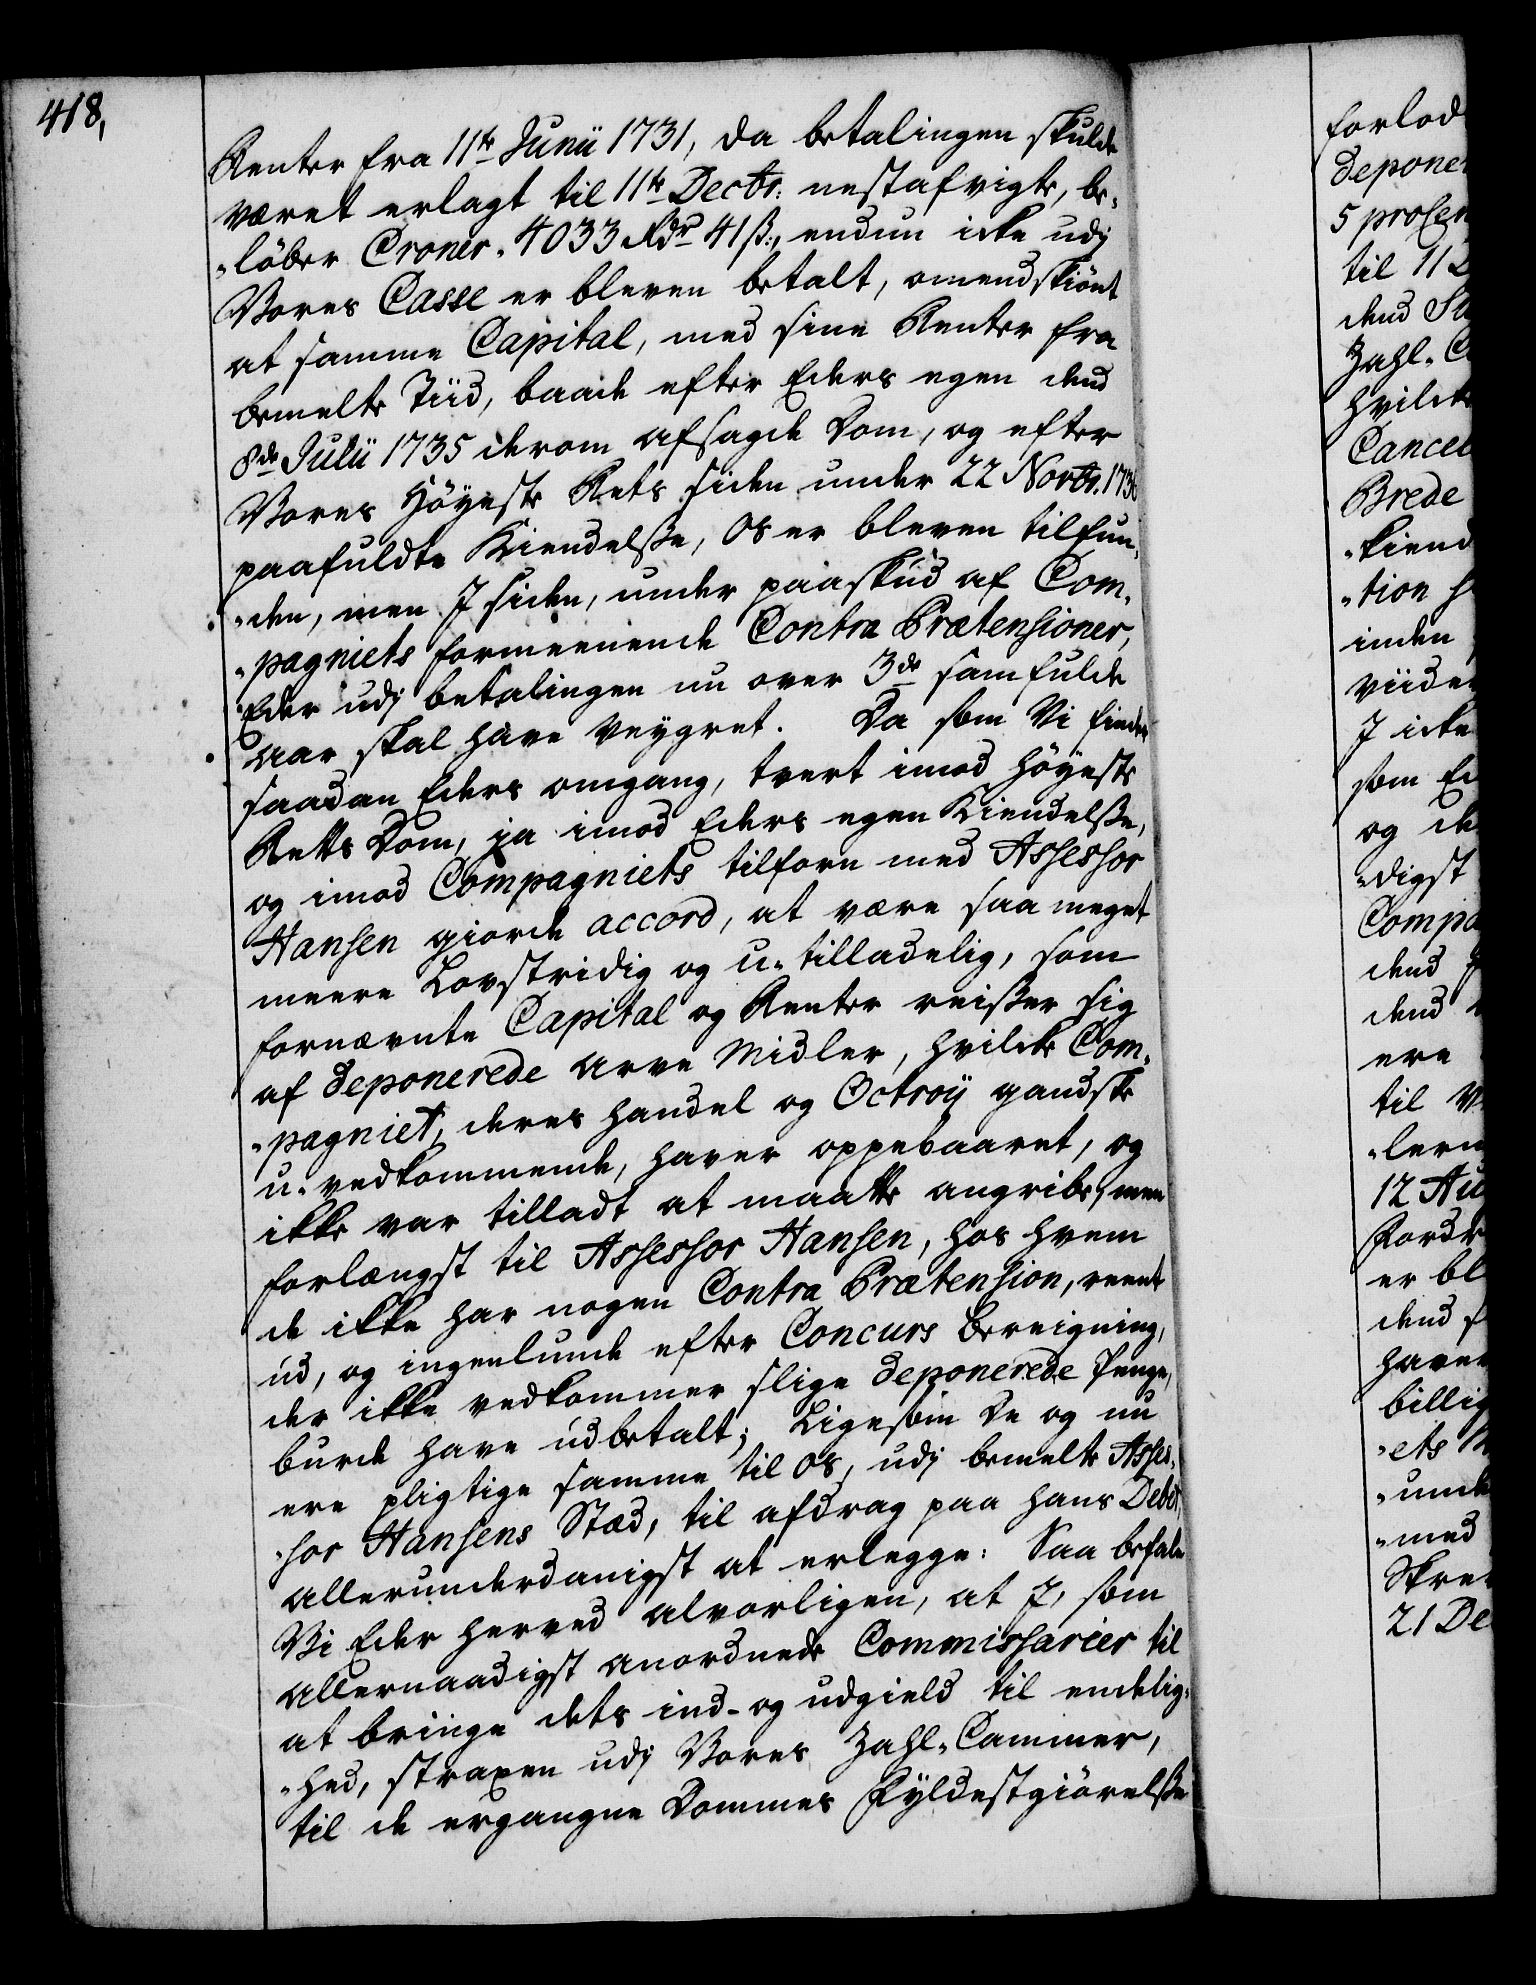 418,
Renter fra 11te Junii 1731, da betalingen skulde
været erlagt til 11te Decbr: nestafvigte, be„
„löber Croner„ 4033 Rdr 41 ß:, endnu icke udj
Vores Casse er bleven betalt, omendskiönt
at samme Capital, med sine Renter fra
bemelte Tiid, baade efter Eders egen dend
8de Julii 1735 derom afsagde Dom, og efter
Vores Höyeste Rets siden under 22 Novbr. 1736
paafuldte Kiendelse, Os er bleven tilfun„
„den, men J siden, under paaskud af Com„
„pagniets formeenende Contra Prætensioner,
Eder udj betalingen nu over 3de samfulde
aar skal have veygret. Da som Vi finder
saadan Eders omgang, tvert imod höyeste
Retts Dom, ja imod Eders egen Kiendelse,
og imod Compagniets tilforn med Assessor
Hansen giorde accord, at være saa meget
meere Lovstridig og u„tilladelig, som
fornævnte Capital og Renter reiser sig
af deponerede arve Midler, hvilcke Com„
„pagniet, deres handel og Octroij gandske
u„vedkommende, haver oppebaaret, og
ikke var tilladt at maatte angribe, men
forlængst til Assessor Hansen, hos hvem
de ikke har nogen Contra Prætension, reent
ud, og ingenlunde efter Concurs Bereigning,
der ikke vedkommer slige deponerede Penge,
burde have udbetalt; Ligesom De og nu
ere pligtige samme til Os, udj bemelte Asses„
„sor Hansens Stæd, til afdrag paa hans Debet,
allerunderdanigst at erlegge: Saa befale
Vi Eder herved alvorligen, at J, som
allernaadigst anordnede Commissarier til
at bringe dets ind- og udgield til endelig„
„hed, straxen udj Vores Zahl„Cammer,
til de ergangne Dommes Fyldestgiörelse
forlod
deponer
5 procen
til 11 D
dend
Zahl„C
hvilcke
Cancel
Brede
„kiend
„tion
inden
viider
J icke
som Ed
og de
„digst
Compa
dend
dend
ere
til V
„lern
12 Au
Fordr
er bl
dend
haver
billig
„ets
„unde
„med
Skre
21 De